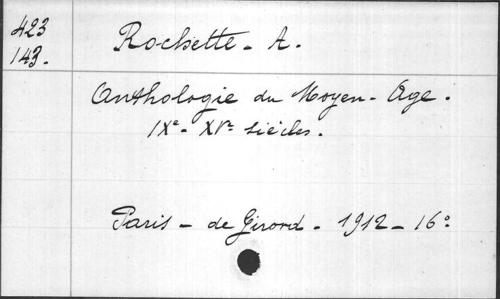 423
143.
Rochette - A.
Anthologie du Moyen-Age.
IXe - XVe siècles.
Paris - de Girord - 1912 - 16°